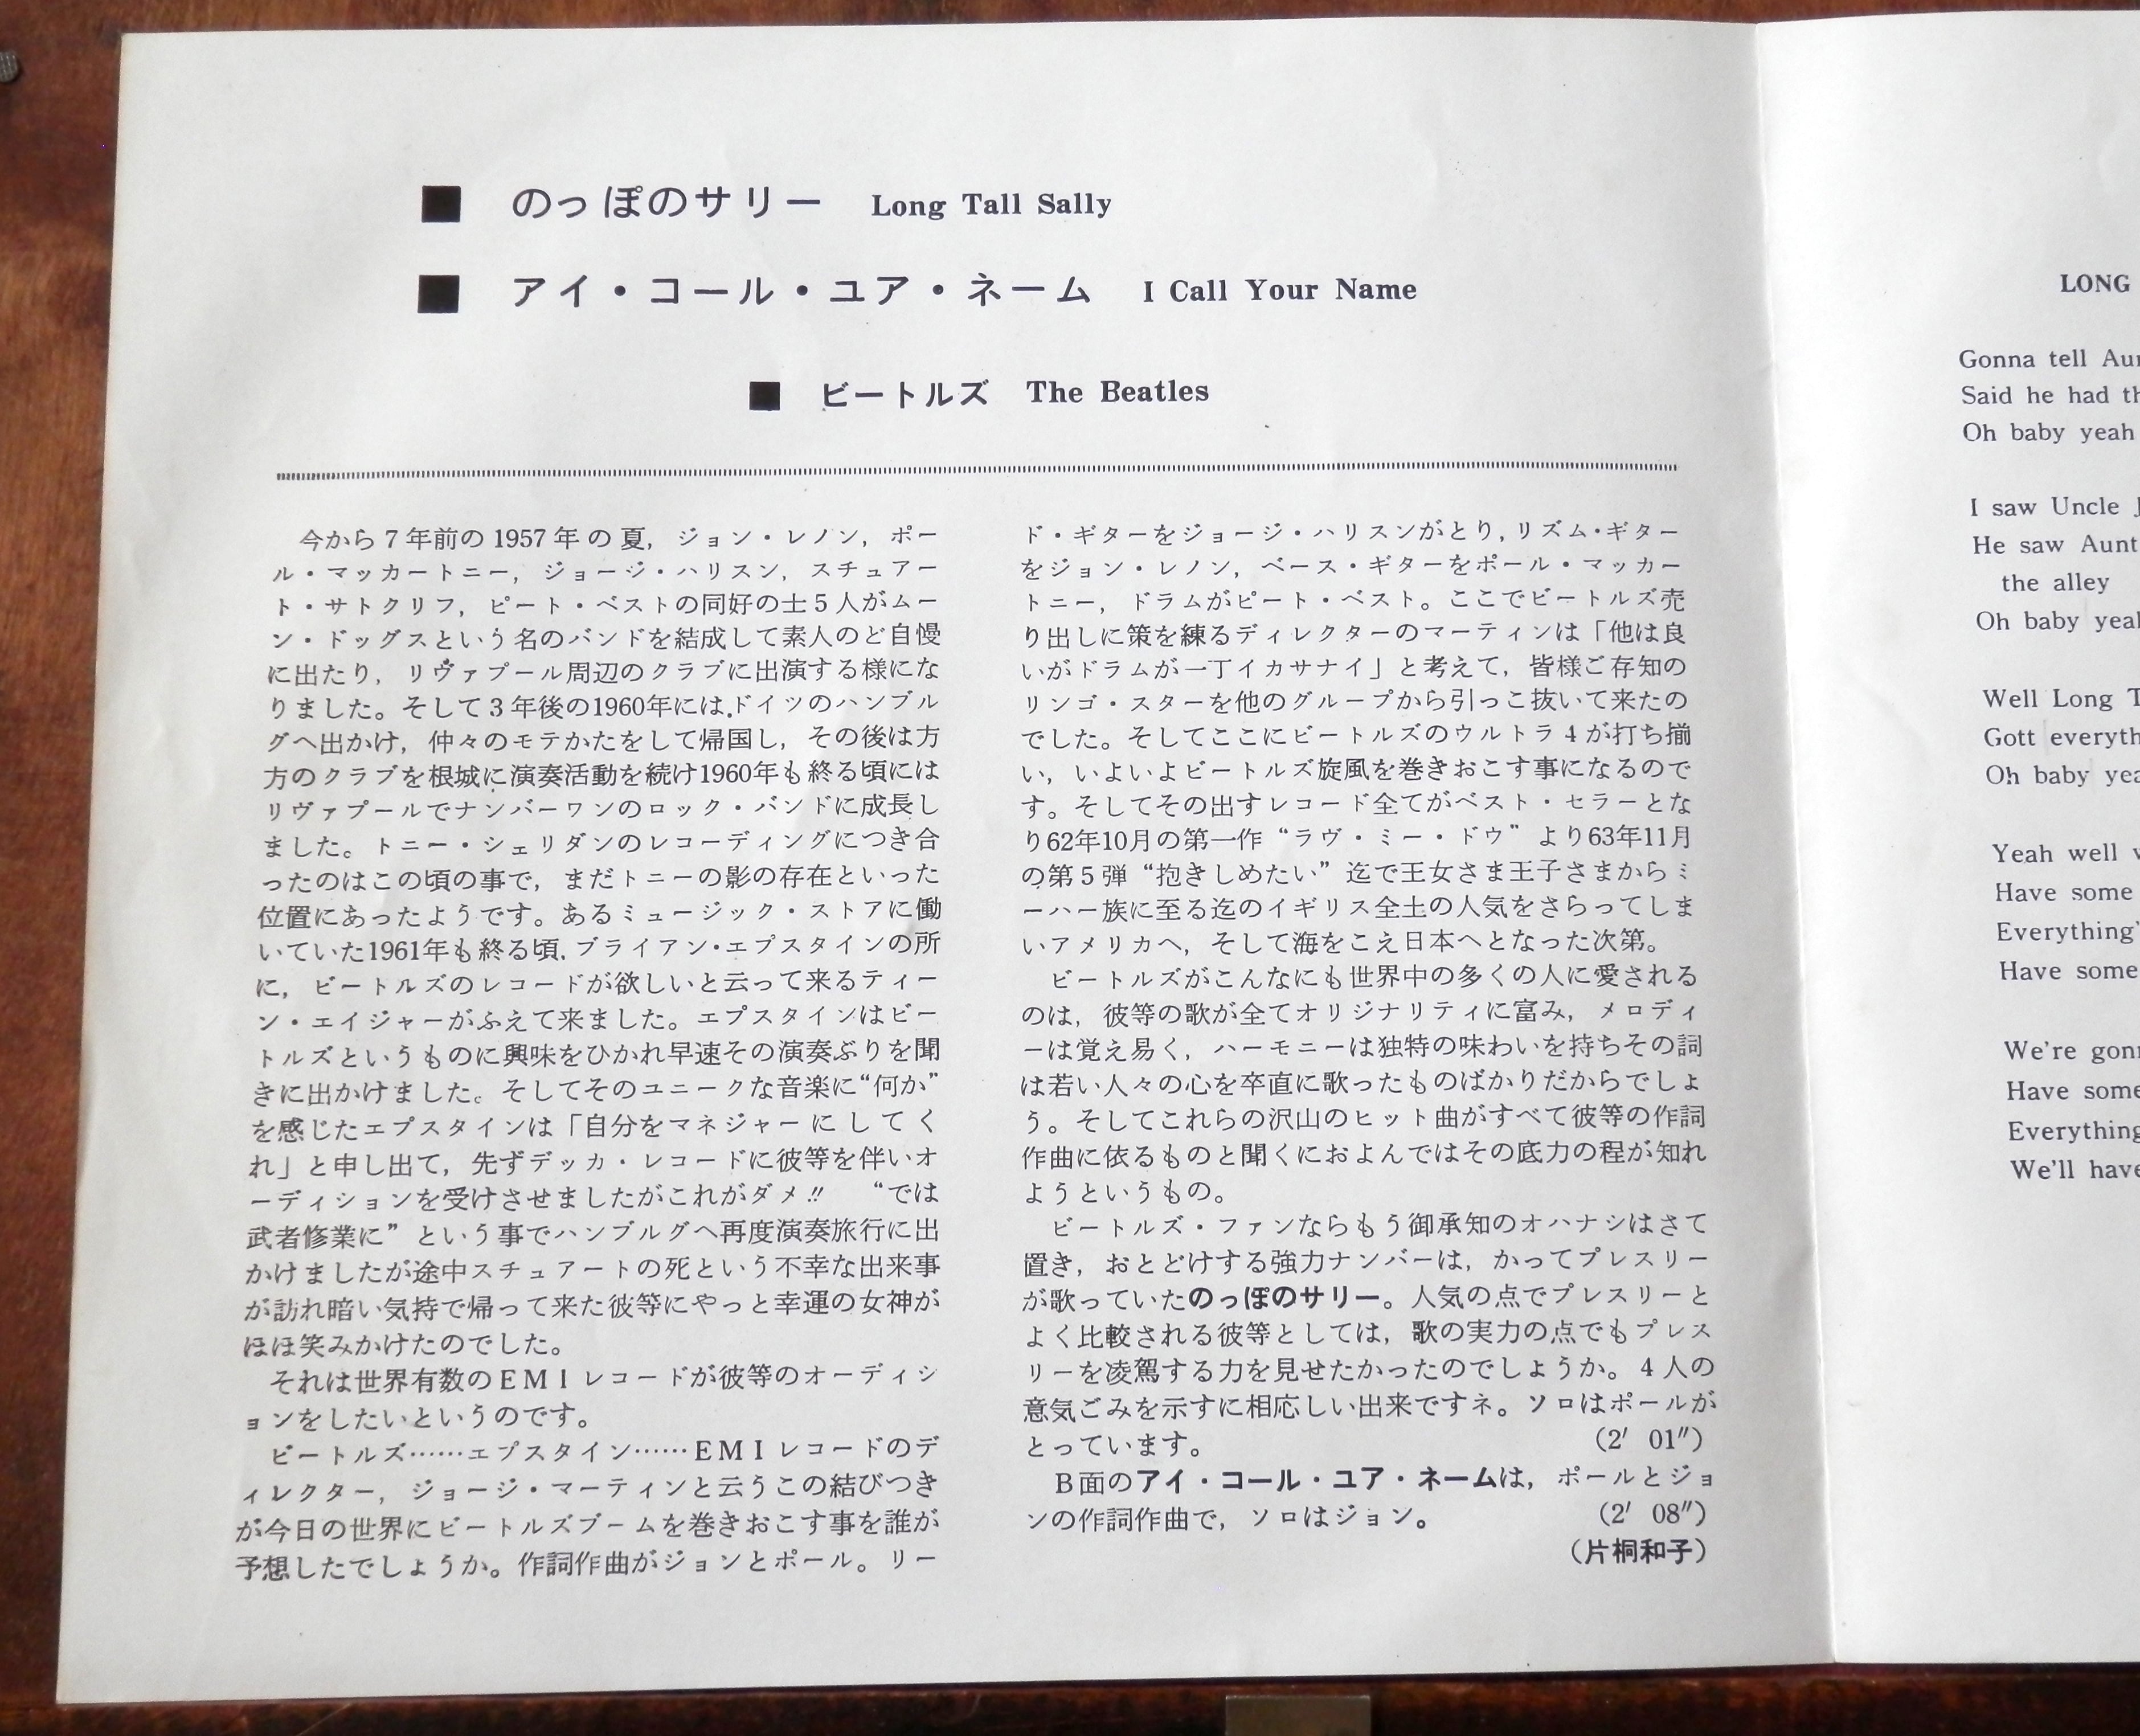 ■ のっぽのサリー Long Tall Sally
■ アイ・コール・ユア・ネーム I Call Your Name
■ ビートルズ The Beatles
今から7年前の1957年の夏，ジョン・レノン，ポー
ル・マッカートニー，ジョージ・ハリスン，スチュアー
ト・サトクリフ，ピート・ベストの同好の士5人がムー
ン・ドッグスという名のバンドを結成して素人のど自慢
に出たり，リヴァプール周辺のクラブに出演する様にな
りました。そして3年後の1960年には，ドイツのハンブル
グへ出かけ，仲々のモテかたをして帰国し，その後は方
方のクラブを根城に演奏活動を続け1960年も終る頃には
リヴァプールでナンバーワンのロック・バンドに成長し
ました。トニー・シェリダンのレコーディングにつき合
ったのはこの頃の事で，まだトニーの影の存在といった
位置にあったようです。あるミュージック・ストアに働
いていた1961年も終る頃，ブライアン・エプスタインの所
に，ビートルズのレコードが欲しいと云って来るティー
ン・エイジャーがふえて来ました。エプスタインはビー
トルズというものに興味をひかれ早速その演奏ぶりを聞
きに出かけました。そしてそのユニークな音楽に“何か”
を感じたエプスタインは「自分をマネジャーにしてく
れ」と申し出て，先ずデッカ・レコードに彼等を伴いオ
ーディションを受けさせましたがこれがダメ!!　“では
武者修業に”という事でハンブルグへ再度演奏旅行に出
かけましたが途中スチュアートの死という不幸な出来事
が訪れ暗い気持で帰って来た彼等にやっと幸運の女神が
ほほ笑みかけたのでした。
それは世界有数のEMIレコードが彼等のオーディシ
ョンをしたいというのです。
ビートルズ……エプスタイン……EMIレコードのデ
ィレクター，ジョージ・マーティンと云うこの結びつき
が今日の世界にビートルズブームを巻きおこす事を誰が
予想したでしょうか。作詞作曲がジョンとポール。リー
ド・ギターをジョージ・ハリスンがとり，リズム・ギター
をジョン・レノン，ベース・ギターをポール・マッカー
トニー，ドラムがピート・ベスト。ここでビートルズ売
り出しに策を練るディレクターのマーティンは「他は良
いがドラムが一丁イカサナイ」と考えて，皆様ご存知の
リンゴ・スターを他のグループから引っこ抜いて来たの
でした。そしてここにビートルズのウルトラ4が打ち揃
い，いよいよビートルズ旋風を巻きおこす事になるので
す。そしてその出すレコード全てがベスト・セラーとな
り62年10月の第一作“ラヴ・ミー・ドゥ”より63年11月
の第5弾“抱きしめたい”迄で王女さま王子さまからミ
ーハー族に至る迄のイギリス全土の人気をさらってしま
いアメリカへ，そして海をこえ日本へとなった次第。
ビートルズがこんなにも世界中の多くの人に愛される
のは，彼等の歌が全てオリジナリティに富み，メロディ
ーは覚え易く，ハーモニーは独特の味わいを持ちその詞
は若い人々の心を卒直に歌ったものばかりだからでしょ
う。そしてこれらの沢山のヒット曲がすべて彼等の作詞
作曲に依るものと聞くにおよんではその底力の程が知れ
ようというもの。
ビートルズ・ファンならもう御承知のオハナシはさて
置き，おとどけする強力ナンバーは，かってプレスリー
が歌っていたのっぽのサリー。人気の点でプレスリーと
よく比較される彼等としては，歌の実力の点でもプレス
リーを凌駕する力を見せたかったのでしょうか。4人の
意気ごみを示すに相応しい出来ですネ。ソロはポールが
とっています。 (2′ 01″)
B面のアイ・コール・ユア・ネームは，ポールとジョ
ンの作詞作曲で，ソロはジョン。 (2′ 08″)
(片桐和子)
LONG
Gonna tell
Said he had
Oh baby yeah
I saw Uncle
He saw Aunt
the alley
Oh baby
Well Long
Gott
Oh baby
Yeah well
Have some
Have some
We're
Have
We'll have